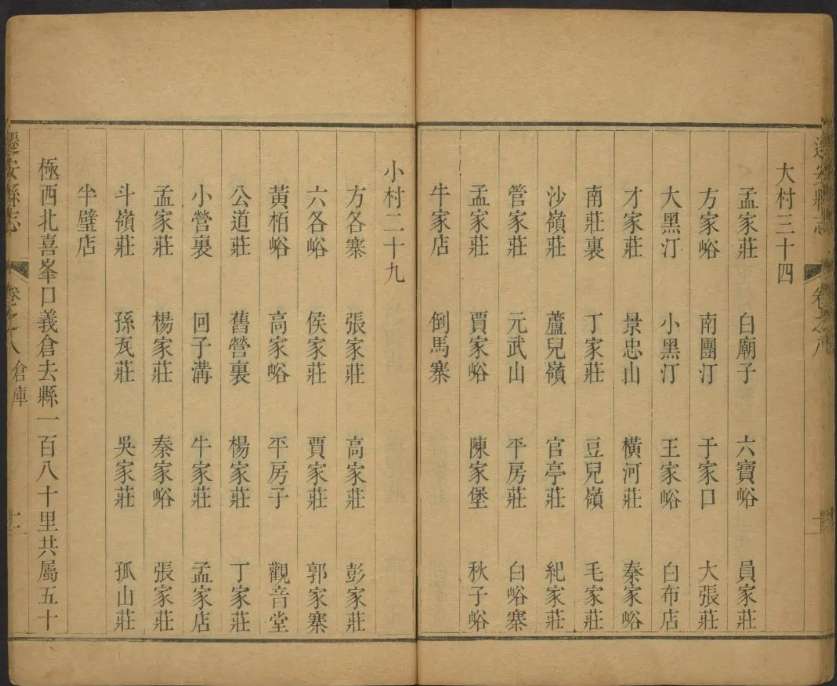 遷安縣志
卷之八
大村三十四
孟家莊 白廟子 六寶峪 員家莊
方家峪 南團汀 于家口 大張莊
大黑汀 小黑汀 王家峪 白布店
才家莊 景忠山 橫河莊 秦家峪
南莊裏 丁家莊 豆兒嶺 毛家莊
沙嶺莊 蘆兒嶺 官亭莊 紀家莊
管家莊 元武山 平房莊 白峪寨
孟家莊 賈家峪 陳家堡 秋子峪
牛家店 倒馬寨
小村二十九
方各寨 張家莊 高家莊 彭家莊
六各峪 侯家莊 賈家莊 郭家寨
黃栢峪 高家峪 平房子 觀音堂
公道莊 舊營裏 楊家莊 丁家莊
小營裏 回子溝 牛家莊 孟家店
孟家莊 楊家莊 秦家峪 張家莊
斗嶺莊 孫瓦莊 吳家莊 孤山莊
半壁店
極西北喜峯口義倉去縣一百八十里共屬五十
遷安縣志 卷之八 倉庫